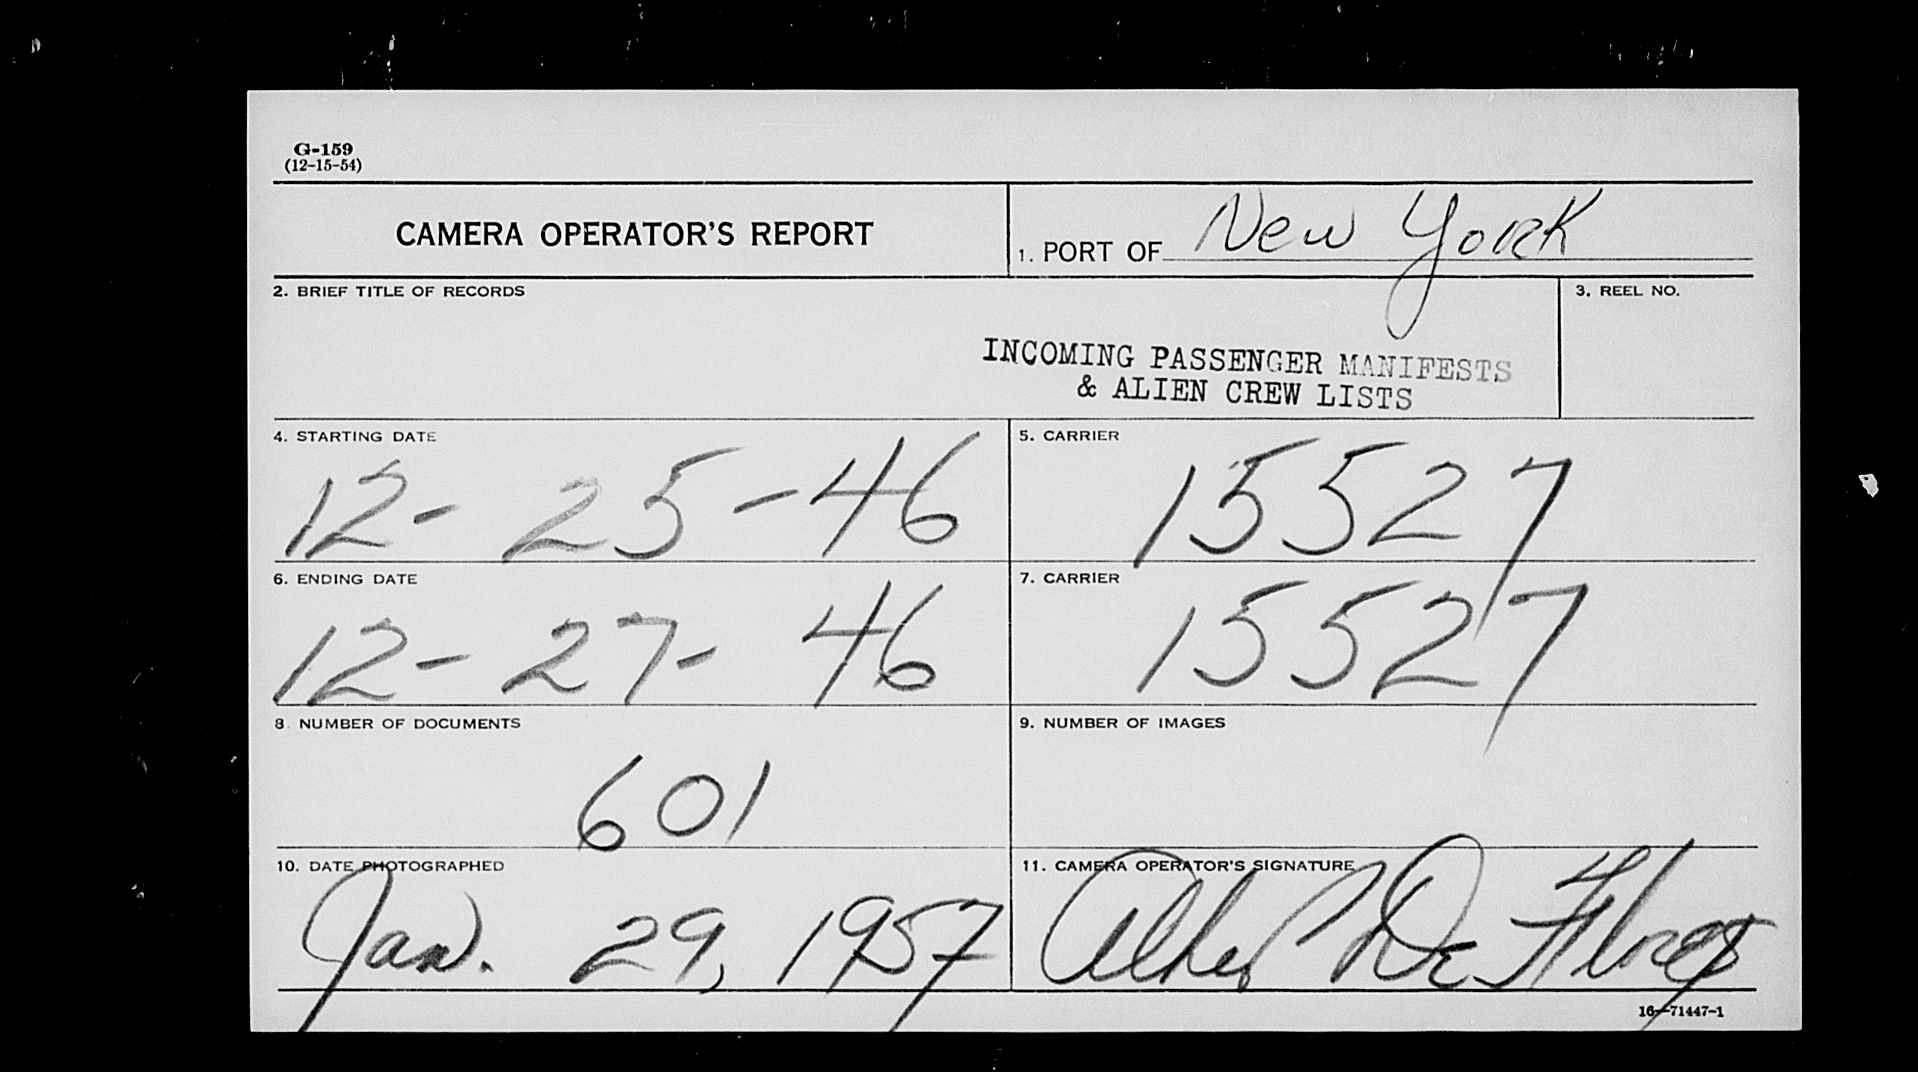 G-159
(12-15-54)
CAMERA OPERATOR'S REPORT
1. PORT OF New York
2. BRIEF TITLE OF RECORDS
INCOMING PASSENGER MANIFESTS
& ALIEN CREW LISTS
3. REEL NO.
4. STARTING DATE
12-25-46
5. CARRIER
15527
6. ENDING DATE
12-27-46
7. CARRIER
15527
8. NUMBER OF DOCUMENTS
601
9. NUMBER OF IMAGES
10. DATE PHOTOGRAPHED
Jan. 29, 1957
11. CAMERA OPERATOR'S SIGNATURE
De
16—71447-1